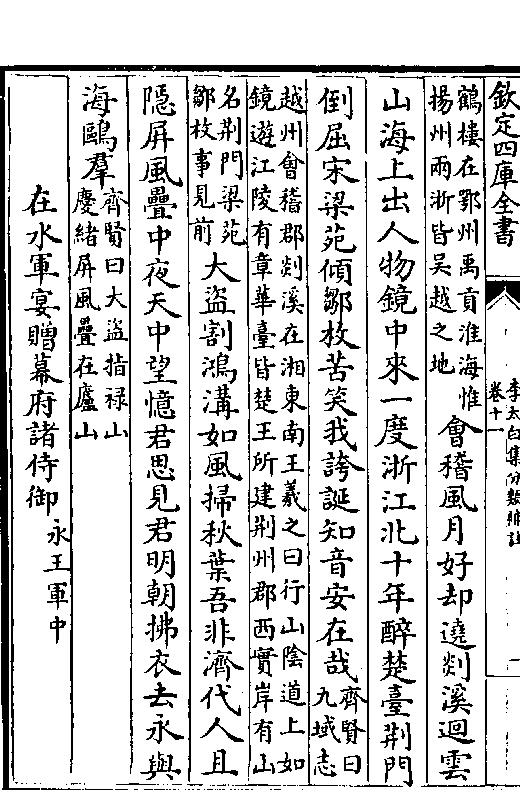 欽定四庫全書
李太白集分類補註
卷十一
鶴樓在鄂州禹貢淮海惟
揚州兩浙皆吳越之地
會稽風月好却遶剡溪迴雲
山海上出人物鏡中來一度浙江北十年醉楚臺荆門
倒屈宋梁苑傾鄒枚苦笑我誇誕知音安在哉
齊賢曰
九域志
越州會稽郡剡溪在湘東南王羲之曰行山陰道上如
鏡遊江陵有章華臺皆楚王所建荆州郡西實岸有山
名荆門梁苑
鄒枚事見前
大盜割鴻溝如風掃秋葉吾非濟代人且
隱屏風疊中夜天中望憶君思見君明朝拂衣去永與
海鷗羣
齊賢曰大盜指禄山
慶緒屏風疊在廬山
在水軍宴贈幕府諸侍御
永王軍中